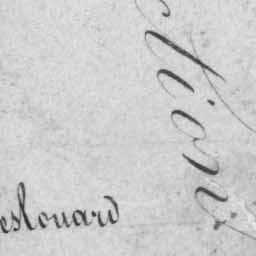 ction.
eslouard